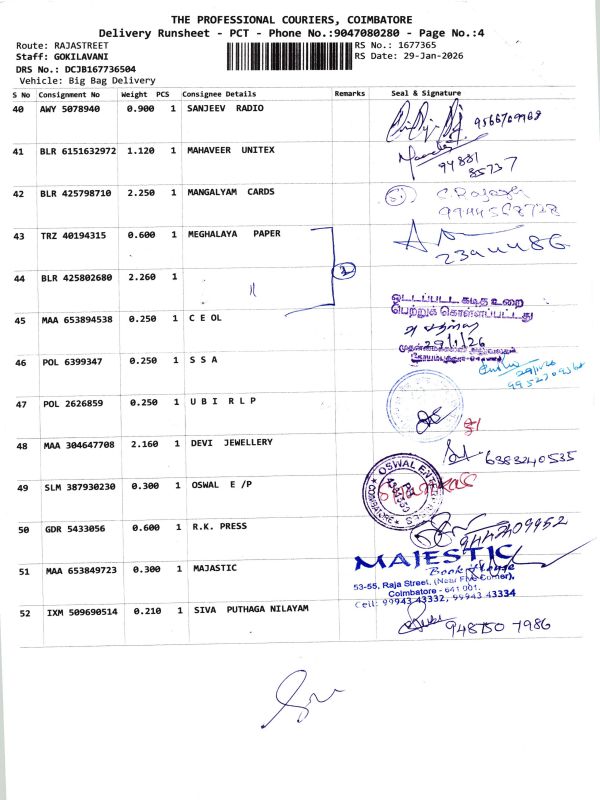 THE PROFESSIONAL COURIERS, COIMBATORE
Delivery Runsheet - PCT - Phone No.:9047080280 - Page No.:4
Route: RAJASTREET
RS No.: 1677365
Staff: GOKILAVANI
RS Date: 29-Jan-2026
DRS No.: DCJB167736504
Vehicle: Big Bag Delivery
S No Consignment No Weight PCS Consignee Details Remarks Seal & Signature
40 AWY 5078940 0.900 1 SANJEEV RADIO
41 BLR 6151632972 1.120 1 MAHAVEER UNITEX
94881
85737
42 BLR 425798710 2.250 1 MANGALYAM CARDS
C. Rajesh
43 TRZ 40194315 0.600 1 MEGHALAYA PAPER
44 BLR 425802680 2.260 1 "
2
ஒட்டப்பட்ட கடித உறை
பெற்றுக் கொள்ளப்பட்டது
45 MAA 653894538 0.250 1 C E OL
29/1/26
46 POL 6399347 0.250 1 S S A
47 POL 2626859 0.250 1 U B I R L P
48 MAA 304647708 2.160 1 DEVI JEWELLERY
6383240535
49 SLM 387930230 0.300 1 OSWAL E /P
OSWAL
COIMBATORE
50 GDR 5433056 0.600 1 R.K. PRESS
51 MAA 653849723 0.300 1 MAJASTIC
MAJESTIC
Book House
53-55, Raja Street, (Near Five Corner),
Coimbatore - 641 001.
Cell: 99943 43332, 99943 43334
52 IXM 509690514 0.210 1 SIVA PUTHAGA NILAYAM
948750 7986